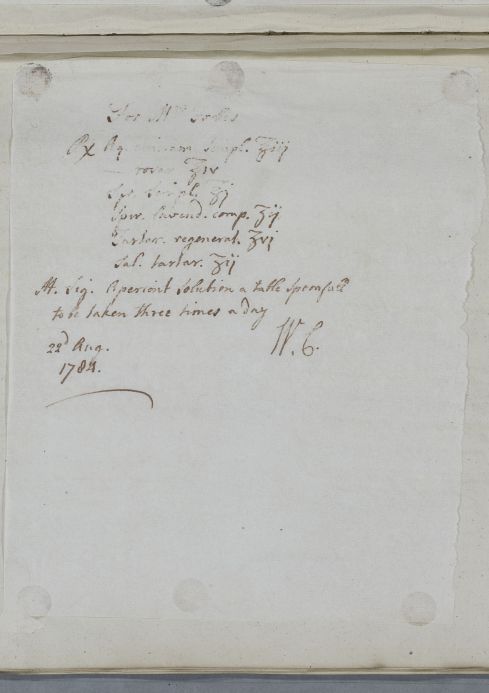 For Mrs
Rx Aq. simpl. ℥iij
— rosar ℥iv
Syr. simpl. ℥j
Spir. Lavend. comp. ʒij
Tartar. regenerat. ʒvj
Sal. tartar. ʒij
M. Sig. Aperient Solution a table spoonfull
to be taken three times a day
W. C.
22d Aug.
1784.